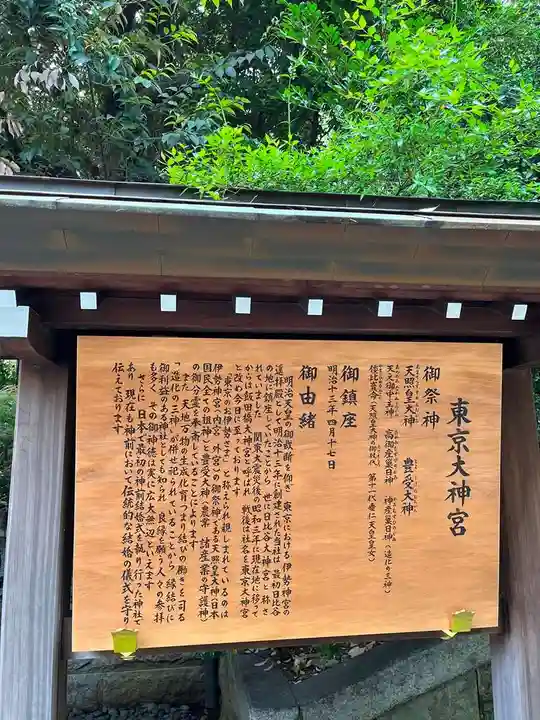 東京大神宮
御祭神
天照皇大神　豊受大神
天之御中主神　高御産巣日神　神産巣日神（造化の三神）
倭比賣命（天照皇大神の御杖代　第十一代垂仁天皇皇女）
御鎮座
明治十三年四月十七日
御由緒
明治天皇の御裁断を仰ぎ　東京における伊勢神宮の
遥拝殿として明治十三年に創建された当社は　最初日比谷
の地に鎮座していたことから　世に日比谷大神宮と称さ
れていました　関東大震災後の昭和三年に現在地に移って
からは飯田橋大神宮と呼ばれ　戦後は社名を東京大神宮
と改め今日に至っております
「東京のお伊勢さま」と称せられ　親しまれているのは
伊勢神宮（内宮　外宮）の御祭神である天照皇大神（日本
国民全ての祖神）と豊受大神（農業　諸産業の守護神）
の御二方を奉斎していることによります
また　天地万物の生成化育つまり結びの働きを司る
「造化の三神」が併せ祀られていることから　縁結びに
御利益のある神社としても知られ　良縁を願う人々の参拝
も多く　その御神徳は実に広大無辺といえます
さらに　日本で最初の神前結婚式を執り行った神社で
あり　現在も神前において伝統的な結婚の儀式を守り
伝えております